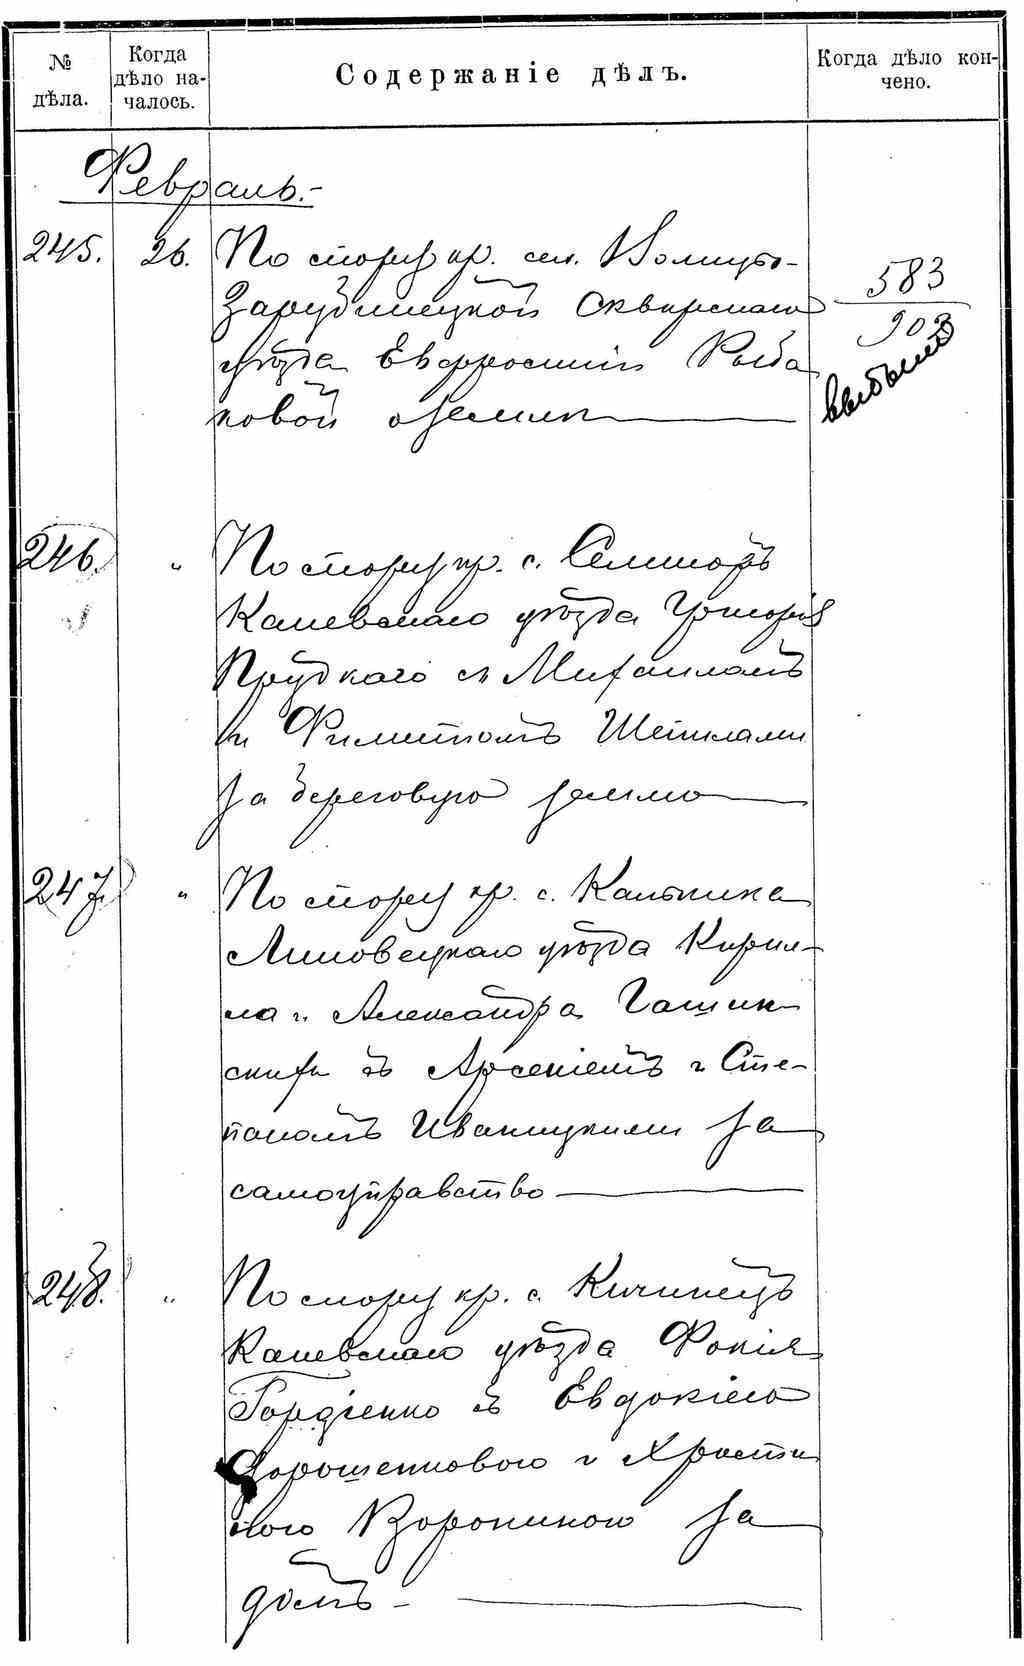 № дѣла.
Когда дѣло началось.
Содержаніе дѣлъ.
Когда дѣло кончено.
Февраль.-
245. 26. По спору кр. сел.
Зарудинецкой Сквирскаго
583
903
уѣзда Евфросиніи Рыба
выбылый
ковой о землѣ
246. „ По спору кр. с. Селищъ
Каневскаго уѣзда Григорія
Прудкаго съ Михаиломъ
и Шепилами
за береговую землю
247. „ По спору кр. с. Кальника
Липовецкаго уѣзда Кирил-
ла и Александра
скихъ съ Арсеніемъ и Сте-
паномъ Иваницкими за
самоуправство
248. „ По спору кр. с. Кичинецъ
Каневскаго уѣзда Фокія
Гордіенко съ Евдокіею
Дорошенковою и Христи
ною Ворониною за
домъ -